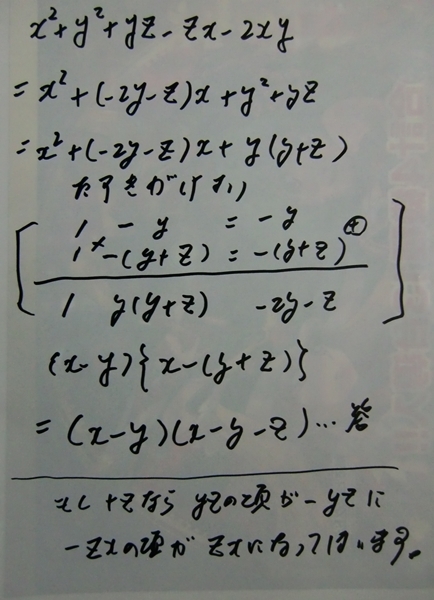 x²+y²+yz-zx-2xy
=x²+(-2y-z)x+y²+yz
=x²+(-2y-z)x+y(y+z)
たすきがけより
1 - y = -y
1 × -(y+z) = -(y+z) (+
1 y(y+z) -2y-z
(x-y){x-(y+z)}
=(x-y)(x-y-z)…答
もし+zなら yzの項が-yzに
-zxの項がzxになってしまいます。